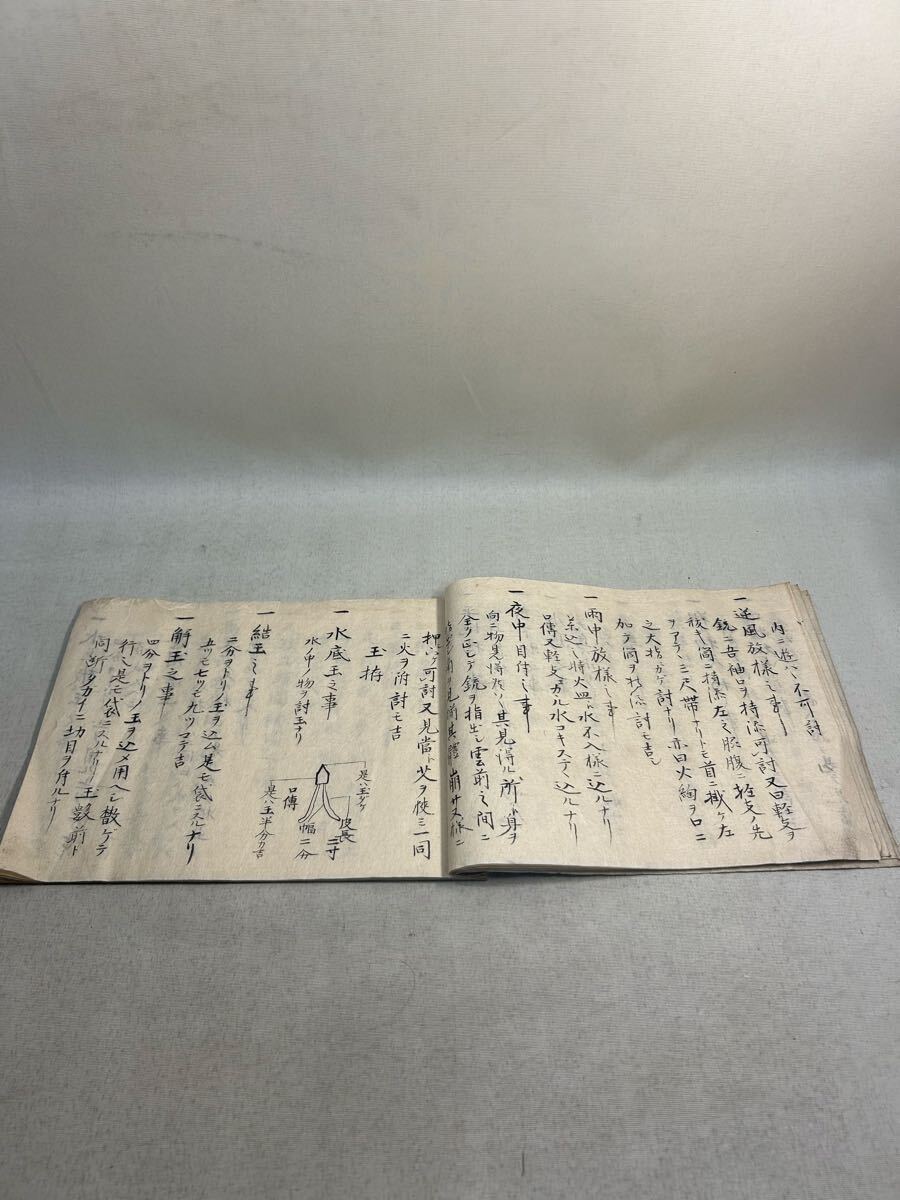 内ニ遊ハヽ不可討
一 逆風放様之事
銃ニ吾袖口ヲ持添可討又曰軽支ヲ
筒ニ持添左之脇腹ニ拄支ノ先
ヲアテヽ三尺帯ナリトモ首ニ掛ケ左
之大指カケ討ナリ亦曰火縄ヲ口ニ
加テ筒ヲ討モ吉シ
一 雨中放様之事
薬込ノ時火皿ニ水不入様ニ込ルナリ
口傳又軽支カル水コキステヽ込ルナリ
一 夜中目付之事
向ニ物見得ナハ其見得ル所ト身ヲ
銃ヲ指出シ雲前之間ニ
見前其體崩サヌ様ニ
押ハケ可討又見當ト火ヲ使ミ一同
ニ火ヲ附討モ吉
玉拵
一 水底玉之事
水ノ中ノ物ヲ討玉ナリ
是ハ玉タケ
皮長二寸
幅二分
口傳
是ハ玉半分カ吉
一 結玉之事
二分ヲトリノ玉ヲ込ム是モ袋ニスルナリ
五ツモ七ツモ九ツマテ吉
一 解玉之事
四分ヲトリノ玉ヲ込メ用ヘシ数ケテ
行シ是モ袋ニスルナリノ玉数前ト
同断タカイニ切目ヲ付ルナリ